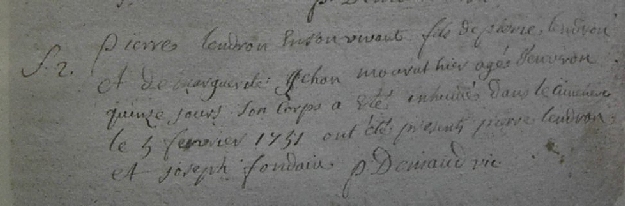 S 2.
pierre lendron En son vivant fils de pierre lendron
et de marguerite gehon mourut hier agé d'environ
quinze jours son corps a été inhumé dans le cimetiere
le 5 fevrier 1751 ont été presents pierre lendron
et joseph fondain p. Deniaud vic